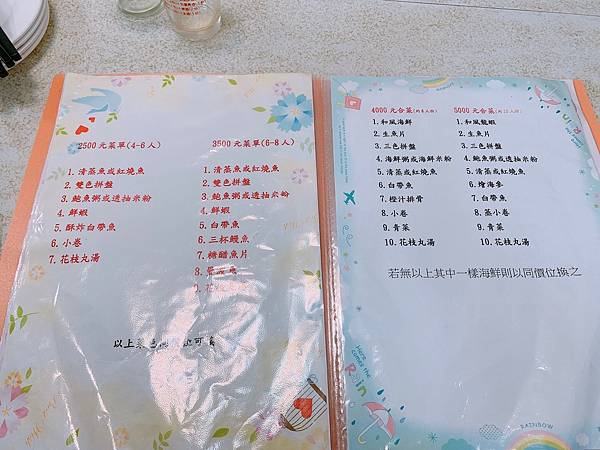 2500 元菜單(4-6人)
1. 清蒸魚或紅燒魚
2. 雙色拼盤
3. 鮑魚粥或透抽米粉
4. 鮮蝦
5. 酥炸白帶魚
6. 小卷
7. 花枝丸湯
3500 元菜單(6-8人)
1. 清蒸魚或紅燒魚
2. 雙色拼盤
3. 鮑魚粥或透抽米粉
4. 鮮蝦
5. 白帶魚
6. 三杯鰻魚
7. 糖醋魚片
8.
9. 花
以上菜色
4000 元合菜(約8人份)
1. 和風海鮮
2. 生魚片
3. 三色拼盤
4. 海鮮粥或海鮮米粉
5. 清蒸或紅燒魚
6. 白帶魚
7. 橙汁排骨
8. 小卷
9. 青菜
10. 花枝丸湯
5000 元合菜(約10人份)
1. 和風龍蝦
2. 生魚片
3. 三色拼盤
4. 鮑魚粥或透抽米粉
5. 清蒸或紅燒魚
6. 燴海參
7. 白帶魚
8. 蒸小卷
9. 青菜
10. 花枝丸湯
若無以上其中一樣海鮮則以同價位換之
Here
comes the
Rain
RAINBOW